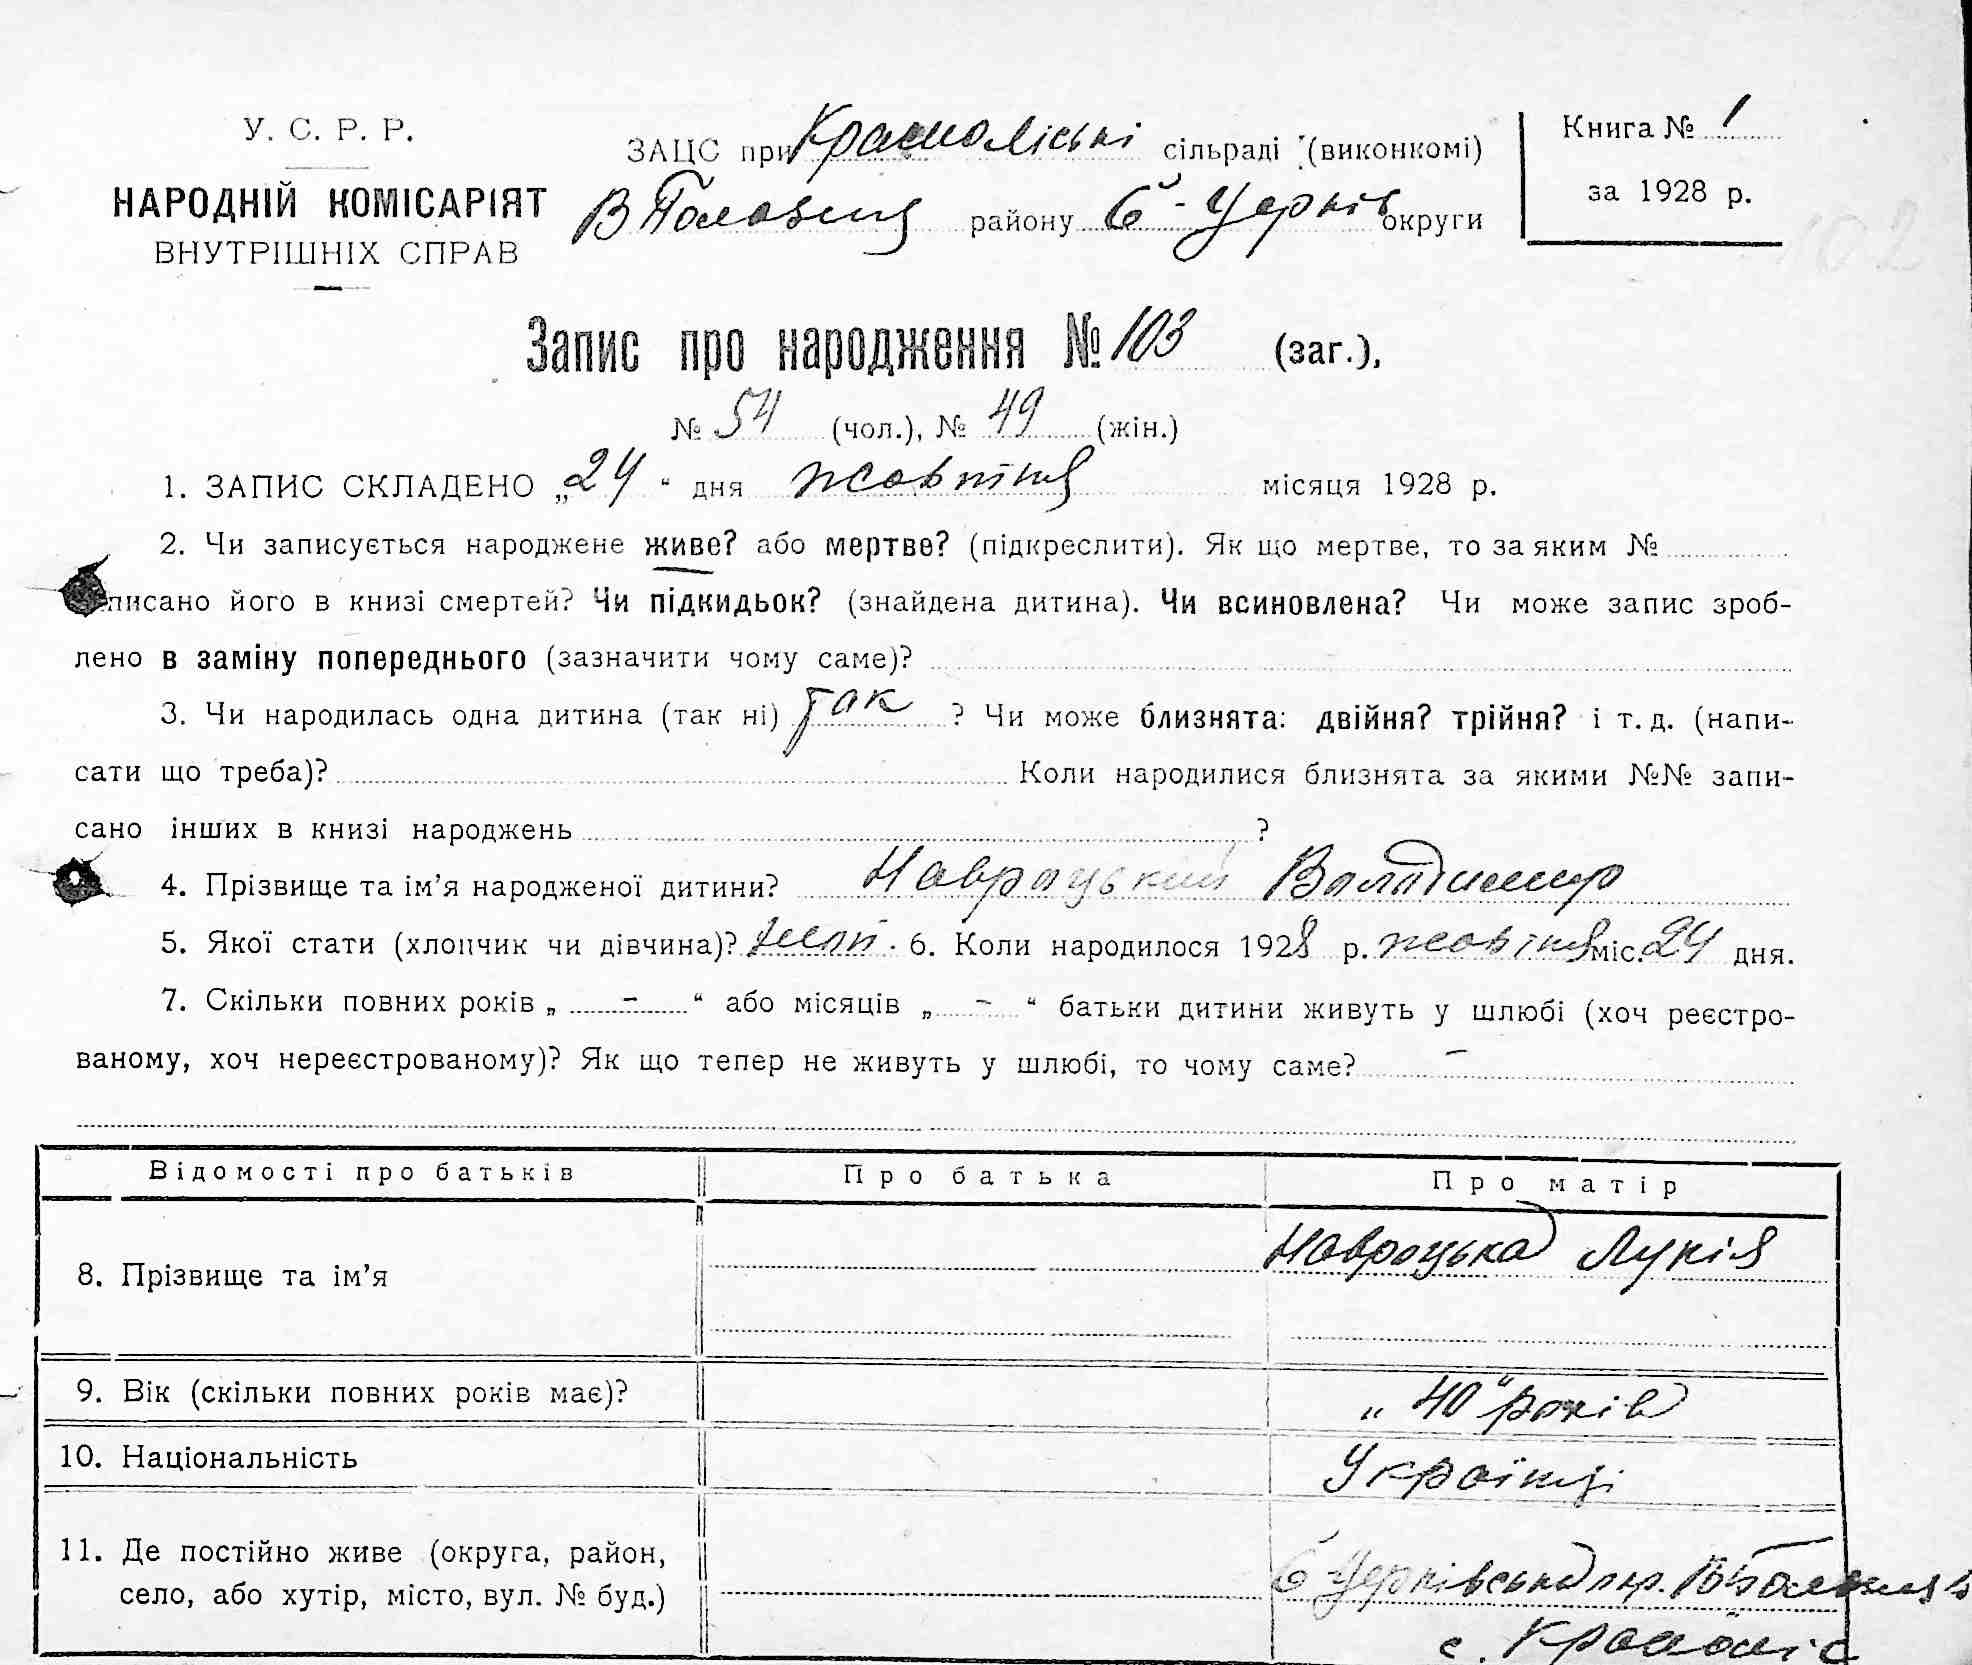 У. С. Р. Р.
НАРОДНІЙ КОМІСАРІЯТ
ВНУТРІШНІХ СПРАВ
ЗАЦС при Красналіські сільраді (виконкомі)
району Б-Церків округи
Книга № 1
за 1928 р.
102
Запис про народження № 103 (заг.),
№ 54 (чол.), № 49 (жін.)
1. ЗАПИС СКЛАДЕНО „24“ дня жовтня місяця 1928 р.
2. Чи записується народжене живе? або мертве? (підкреслити). Як що мертве, то за яким №
писано його в книзі смертей? Чи підкидьок? (знайдена дитина). Чи всиновлена? Чи може запис зроб-
лено в заміну попереднього (зазначити чому саме)?
3. Чи народилась одна дитина (так ні) так ? Чи може близнята: двійня? трійня? і т. д. (напи-
сати що треба)? Коли народилися близнята за якими №№ запи-
сано інших в книзі народжень ?
4. Прізвище та ім’я народженої дитини? Навроцький Владимир
5. Якої стати (хлопчик чи дівчина)? 6. Коли народилося 1928 р. жовтня міс. 24 дня.
7. Скільки повних років „ - “ або місяців „ - “ батьки дитини живуть у шлюбі (хоч реєстро-
ваному, хоч нереєстрованому)? Як що тепер не живуть у шлюбі, то чому саме? –
Відомості про батьків Про батька Про матір
8. Прізвище та ім’я Навроцька Лукія
9. Вік (скільки повних років має)? „40“ років
10. Національність Українці
11. Де постійно живе (округа, район,
село, або хутір, місто, вул. № буд.) Б Церківська окр.
с.